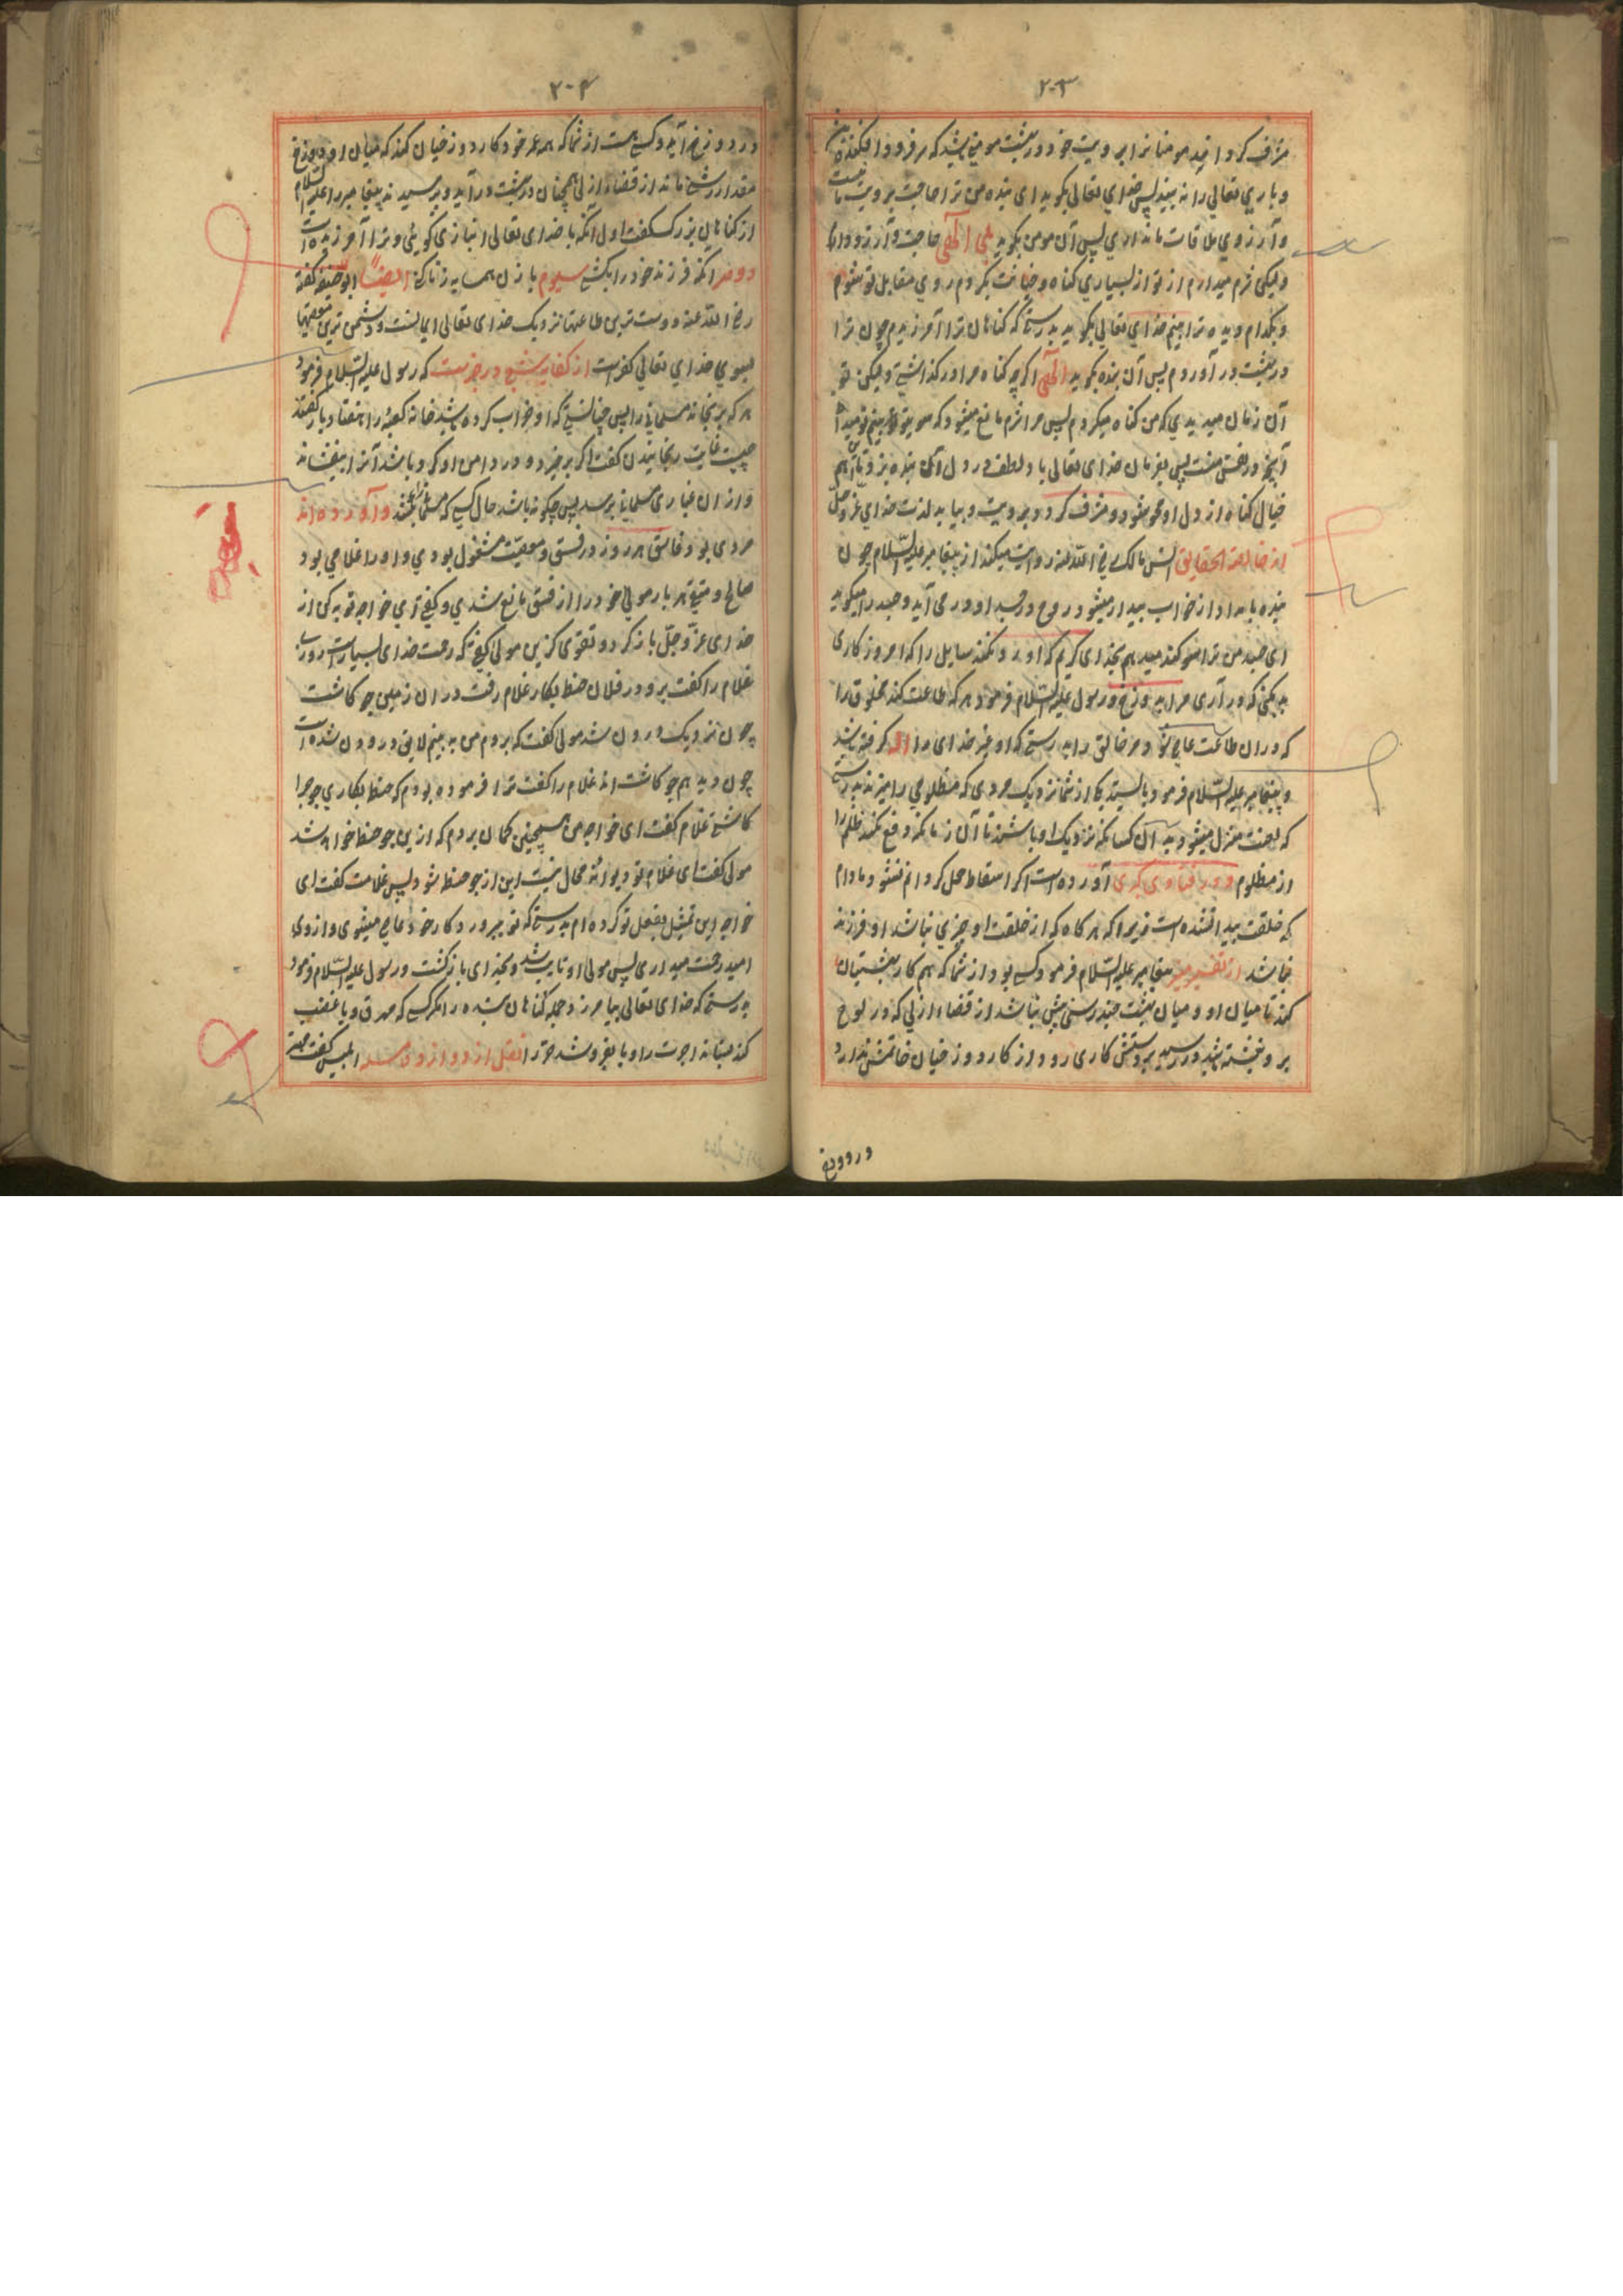 ۲۰۳
مشرف گرداند مومنانرا برویت خود و در بهشت مومنی باشد که سر فرود افکنده باشد
و باری تعالی را نه بیند پس خدای تعالی بگوید ای بنده من ترا حاجت برویت ما نیست
و آرزوی ملاقات ما نداری پس آن مومن بگوید بلی الهی حاجت و آرزو دارم
ولیکن شرم میدارم از تو از بسیاری گناه و خیانت بکردم روی مقابل تو شوم
و بکدام دیده ترا بینم خدای تعالی بگوید بدرستی که گناهان ترا آمرزیدم چون ترا
در بهشت در آوردم پس آن بنده بگوید الهی اگرچه گناه مرا در گذاشتی ولیکن تو
آن زمان میدیدی که من گناه میکردم پس مرا شرم مانع میشود که سوی تو بینم تو میدانی
آنچه در نفس منست پس بفرمان خدای تعالی باد لطف در دل آن بنده بزد تا آن هم
خیال گناه از دل او محو شود و مشرف گردد برویت و بیابد لذت خدای عز و جل
از خالصة الحقایق انس مالک رضی الله عنه روایت میکند از پیغامبر علیه السلام چون
بنده بامداد از خواب بیدار میشود روح در جسد او در می آید و جسد را میگوید
ای جسد من ترا سوگند میدهم بخدای کریم که او رد نکند سایل را که امروز کاری
نه بکنی که در آری مرا به دوزخ و رسول علیه السلام فرمود هر که طاعت کند مخلوق را
که در ان طاعت عاصی شود مر خالق را بدرستی که او غیر خدای را اله گرفته باشد
و پیغامبر علیه السلام فرمود بایستید یکی از شما نزدیک مردی که مظلومی را میزند بدرستی
که لعنت منزل میشود به آن کسانیکه نزدیک او باشند تا آن زمانکه دفع نکنند ظلم را
از مظلوم و در فتاوی کبری آورده است اگر اسقاط حمل کرد اثم نشود مادام
که خلقت پیدا نشده است زیرا که هر گاه که از خلقت او چیزی نباشد او فرزند
نباشد از تفسیر میر پیغامبر علیه السلام فرمود کسی بود از شما که هم کار بهشتیان
کند تا میان او و میان بهشت چند رسنی بیش نباشد از قضاء ازلی که در لوح
برو نبشته باشد در رسید برو بستنی کاری رود از کار دوزخیان خاتمتش ندارد
در دوزخ
۲۰۴
در دوزخ در آید و کسی هست از شما که همه عمر خود کار دوزخیان کند که میان او و دوزخ
مقدار رشی ماند از قضاء ازلی همچنان در بهشت در آید و پرسیدند پیغامبر را علیه السلام
از گناهان بزرگ گفت اول آنکه با خدای تعالی انبازی گویی و ترا آفریده است
دوم آنکه فرزند خود را بکشی سیوم با زن همسایه زنا کنی ایضاً ابو حنیفه گفته
رضی الله عنه دوست ترین طاعتها نزدیک خدای تعالی ایمانست و دشمن ترین معصیتها
بسوی خدای تعالی کفر است از کفایه شعبی در خبر است که رسول علیه السلام فرمود
هر که برنجاند مسلمانی را پس چنانستی که او خراب کرده باشد خانه کعبه را هفتاد بار گفتند
چیست غایت رنجانیدن گفت اگر برخیزد و در دامن او گرد باشد آنرا بیفشاند
و از ان غباری مسلمانی برسد پس چگونه باشد حال کسی که مسلمانی را بکشد و آورده اند
مردی بود فاسق هر روز در فسق و معصیت مشغول بودی و او را غلامی بود
صالح و متقی هر بار مولی خود را از فسق مانع شدی و گفتی ای خواجه توبه کن از
خدای عز و جل باز گرد و تقوی گزین مولی گفتی که رحمت خدای بسیار است روزی
غلام را گفت برو در فلان حنطه بکار غلام رفت در ان زمین جو کاشت
چون نزدیک درون شد مولی گفت که بروم من به بینم لایق درودن شده است
چون دید هم جو کاشت اند غلام را گفت ترا فرموده بودم که حنطه بکاری جو چرا
کاشتی غلام گفت ای خواجه من همچنین گمان بردم که از این جو حنطه خواهد شد
مولی گفت ای غلام تو دیوانه محال نیست این از جو حنطه شود پس غلامت گفت ای
خواجه این تمثیل بفعل تو کرده ام بدرستی که تو بپرورد کار خود عاصی میشوی و از وی
امید رحمت میداری پس مولی او تایب شد و بخدای بازگشت و رسول علیه السلام فرمود
بدرستی که خدای تعالی بیامرزد جمله گناهان بنده را مگر کسی که مهر ق و یا غصب
کند بستاند اجرت را و یا بفروشد حر را نقل از دوازده مسئله ابلیس گفت مهتر